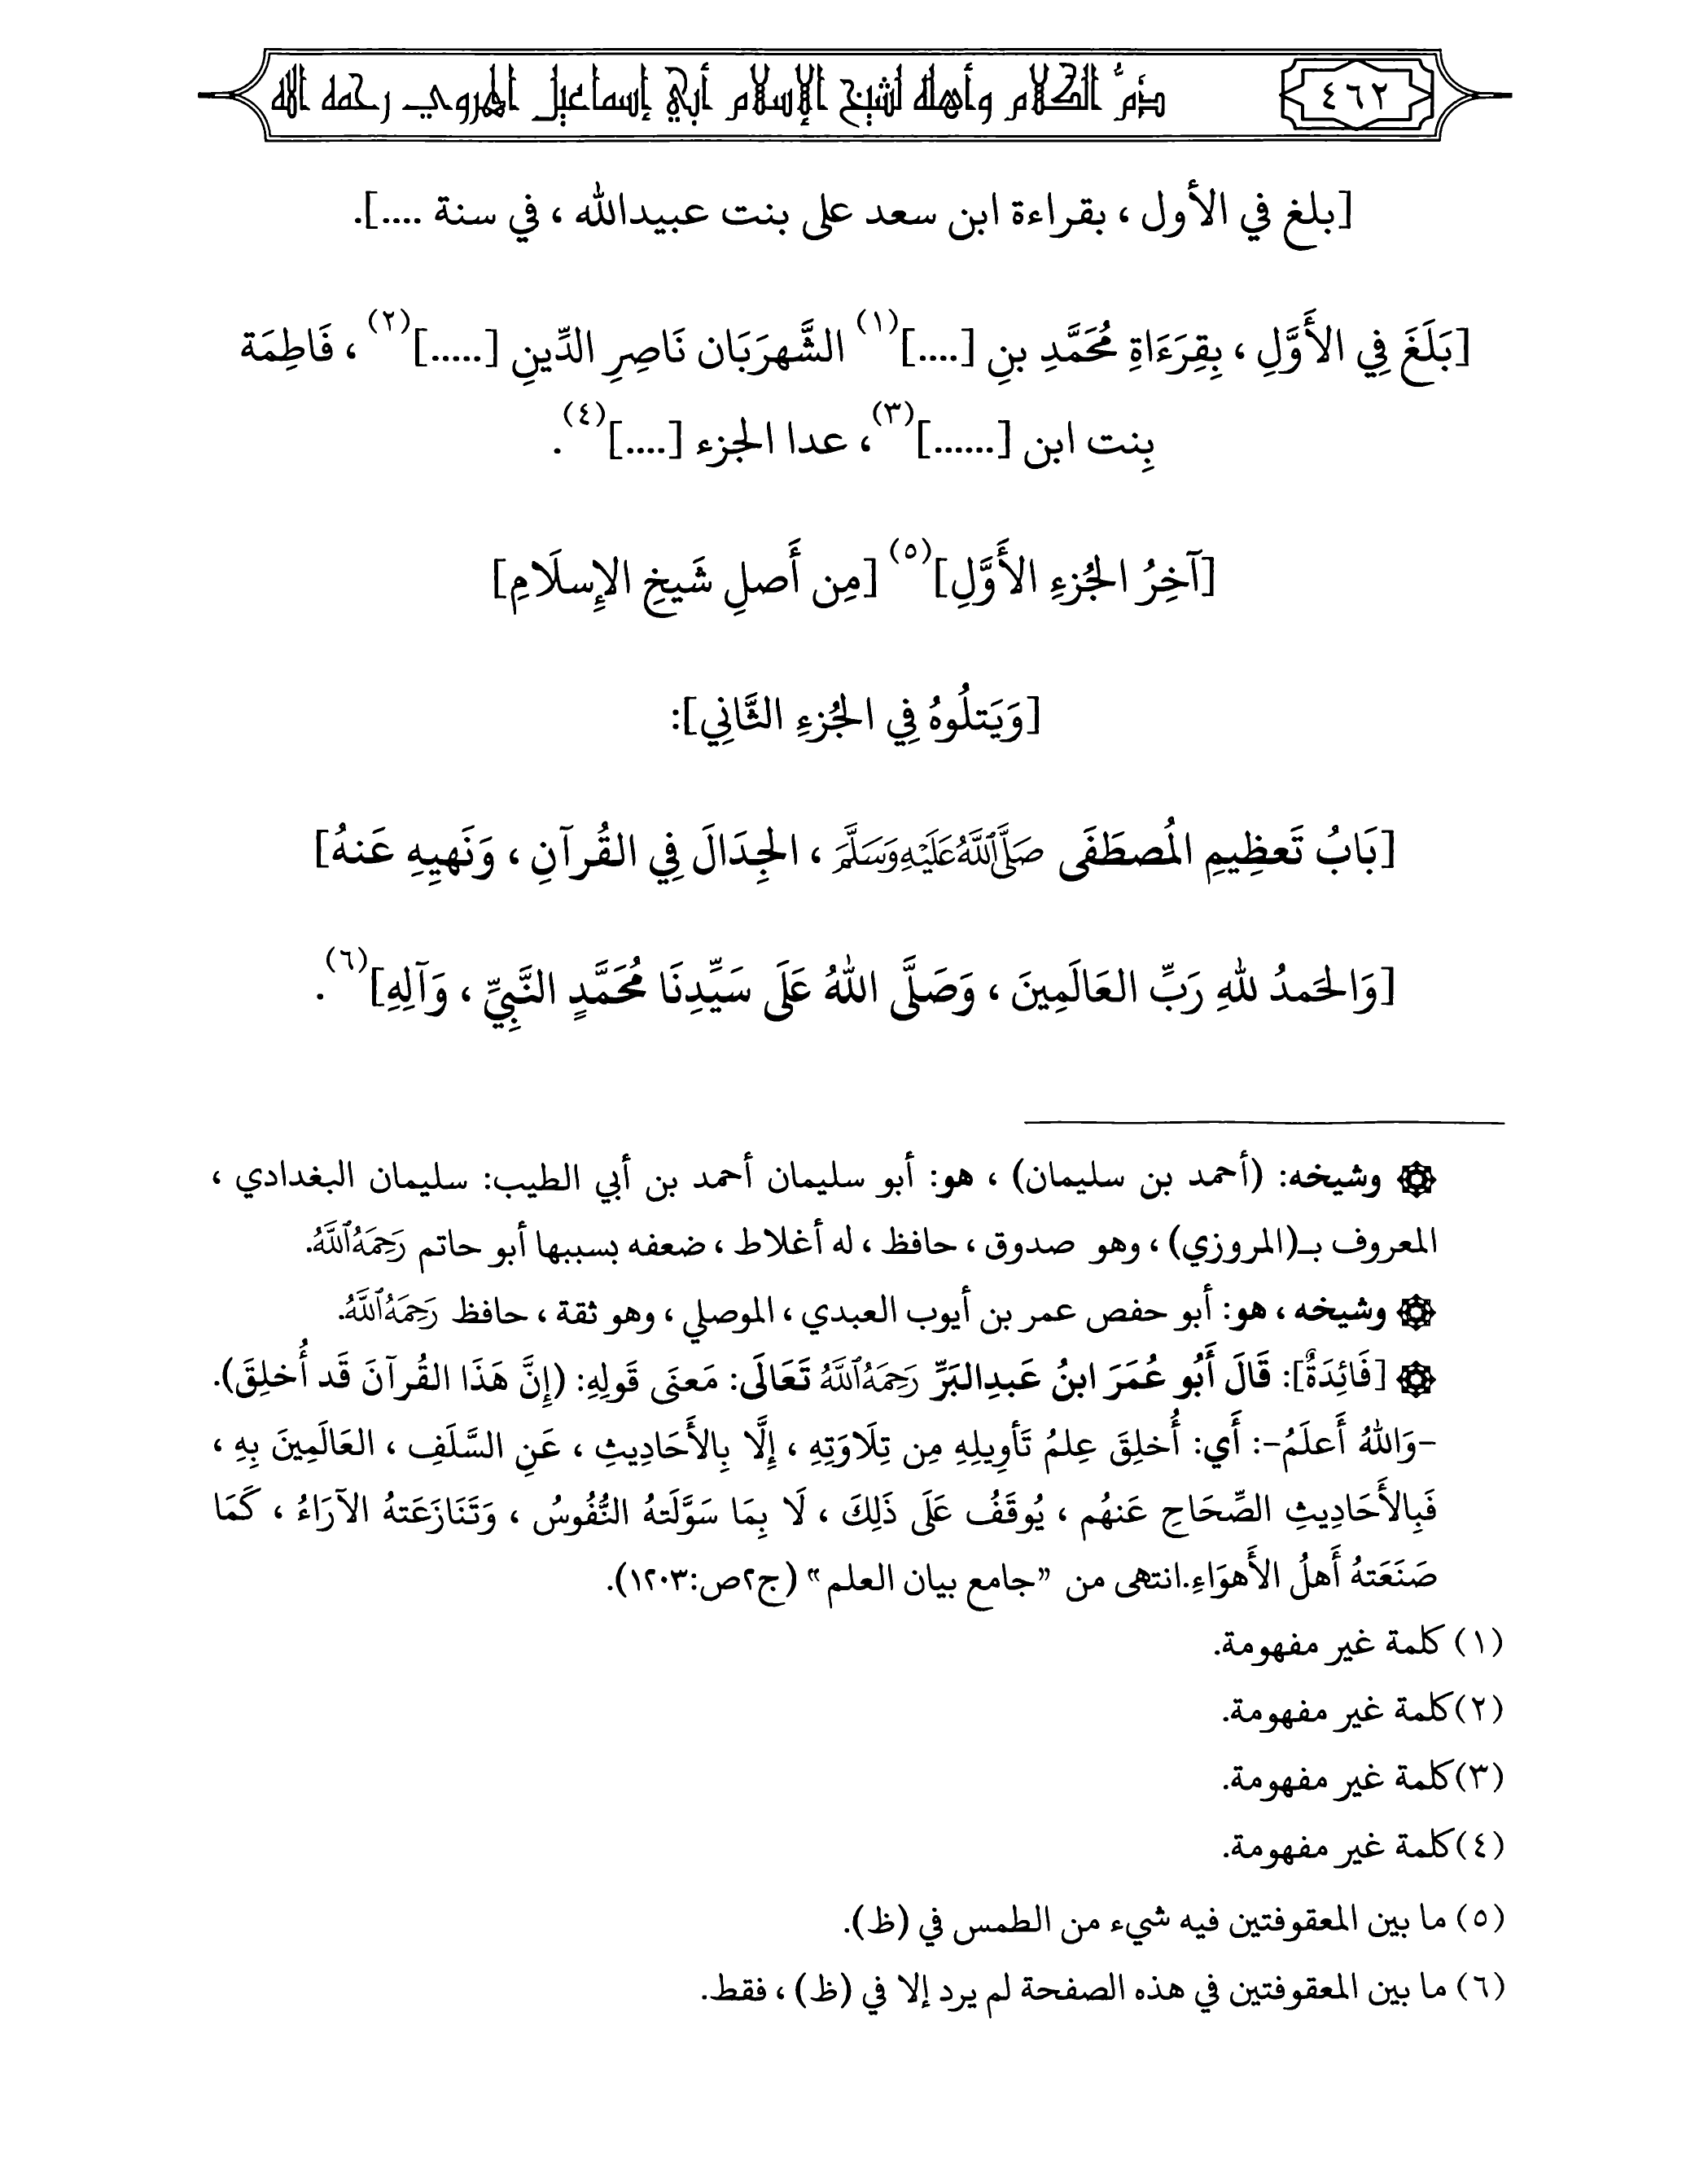 ٤٦٢
ذمُّ الكلام وأهله لشيخ الإسلام أبي إسماعيل الهروي رحمه الله
[بلغ في الأول ، بقراءة ابن سعد على بنت عبيدالله ، في سنة ....].
[بَلَغَ فِي الأَوَّلِ ، بِقِرَءَاةِ مُحَمَّدِ بنِ [....](١) الشَّهرَبَان نَاصِرِ الدِّينِ [.....](٢) ، فَاطِمَة
بِنت ابن [......](٣)، عدا الجزء [....](٤).
[آخِرُ الجُزءِ الأَوَّلِ](٥) [مِن أَصلِ شَيخِ الإِسلَامِ]
[وَيَتلُوهُ فِي الجُزءِ الثَّانِي]:
[بَابُ تَعظِيمِ المُصطَفَى صَلَّى اللَّهُ عَلَيْهِ وَسَلَّمَ ، الجِدَالَ فِي القُرآنِ ، وَنَهيِهِ عَنهُ]
[وَالحَمدُ للهِ رَبِّ العَالَمِينَ ، وَصَلَّى اللهُ عَلَى سَيِّدِنَا مُحَمَّدٍ النَّبِيِّ ، وَآلِهِ](٦).
وشيخه: (أحمد بن سليمان) ، هو: أبو سليمان أحمد بن أبي الطيب: سليمان البغدادي ،
المعروف بـ(المروزي) ، وهو صدوق ، حافظ ، له أغلاط ، ضعفه بسببها أبو حاتم رَحِمَهُ اللَّهُ.
وشيخه ، هو: أبو حفص عمر بن أيوب العبدي ، الموصلي ، وهو ثقة ، حافظ رَحِمَهُ اللَّهُ.
[فَائِدَةٌ]: قَالَ أَبُو عُمَرَ ابنُ عَبدِالبَرِّ رَحِمَهُ اللَّهُ تَعَالَى: مَعنَى قَولِهِ: (إِنَّ هَذَا القُرآنَ قَد أُخلِقَ).
-وَاللهُ أَعلَمُ-: أَي: أُخلِقَ عِلمُ تَأوِيلِهِ مِن تِلَاوَتِهِ ، إِلَّا بِالأَحَادِيثِ ، عَنِ السَّلَفِ ، العَالَمِينَ بِهِ ،
فَبِالأَحَادِيثِ الصِّحَاحِ عَنهُم ، يُوقَفُ عَلَى ذَلِكَ ، لَا بِمَا سَوَّلَتهُ النُّفُوسُ ، وَتَنَازَعَتهُ الآرَاءُ ، كَمَا
صَنَعَتهُ أَهلُ الأَهوَاءِ.انتهى من «جامع بيان العلم» (ج٢ص:١٢٠٣).
(١) كلمة غير مفهومة.
(٢)كلمة غير مفهومة.
(٣)كلمة غير مفهومة.
(٤)كلمة غير مفهومة.
(٥) ما بين المعقوفتين فيه شيء من الطمس في (ظ).
(٦) ما بين المعقوفتين في هذه الصفحة لم يرد إلا في (ظ) ، فقط.